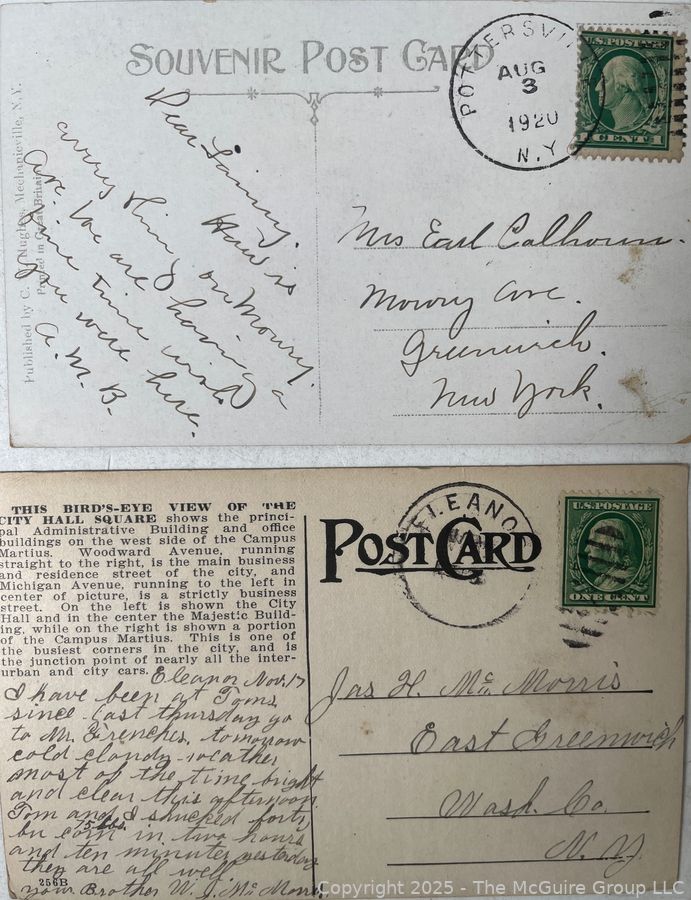 SOUVENIR POST CARD
POTTERSVILLE
AUG
3
1920
N.Y.
U.S. POSTAGE
1 CENT 1
Published by C. Hughes, Mechanicville, N.Y.
Printed in Great Britain
Dear
How is
every thing on Mowry
Ave. We are having a
fine time wish
you were here.
A. M. B.
Mrs Earl Calhoun.
Mowry Ave.
Greenwich.
New York.
THIS BIRD'S-EYE VIEW OF THE
CITY HALL SQUARE shows the princi-
pal Administrative Building and office
buildings on the west side of the Campus
Martius. Woodward Avenue, running
straight to the right, is the main business
and residence street of the city, and
Michigan Avenue, running to the left in
center of picture, is a strictly business
street. On the left is shown the City
Hall and in the center the Majestic Build-
ing, while on the right is shown a portion
of the Campus Martius. This is one of
the busiest corners in the city, and is
the junction point of nearly all the inter-
urban and city cars.
POST CARD
ELEANOR
U.S. POSTAGE
ONE CENT
Eleanor Nov. 17
I have been at Toms
since last thursday go
to Mr. Frenches, tomorrow
cold cloudy weather
most of the time bright
and clear this afternoon
Tom and I shucked forty
bu corn in two hours
and ten minutes yesterday
they are all well
your Brother W. J. Mc Morris
256B
Jas H. Mc Morris
East Greenwich
Wash. Co.
N. Y.
Copyright 2025 - The McGuire Group LLC